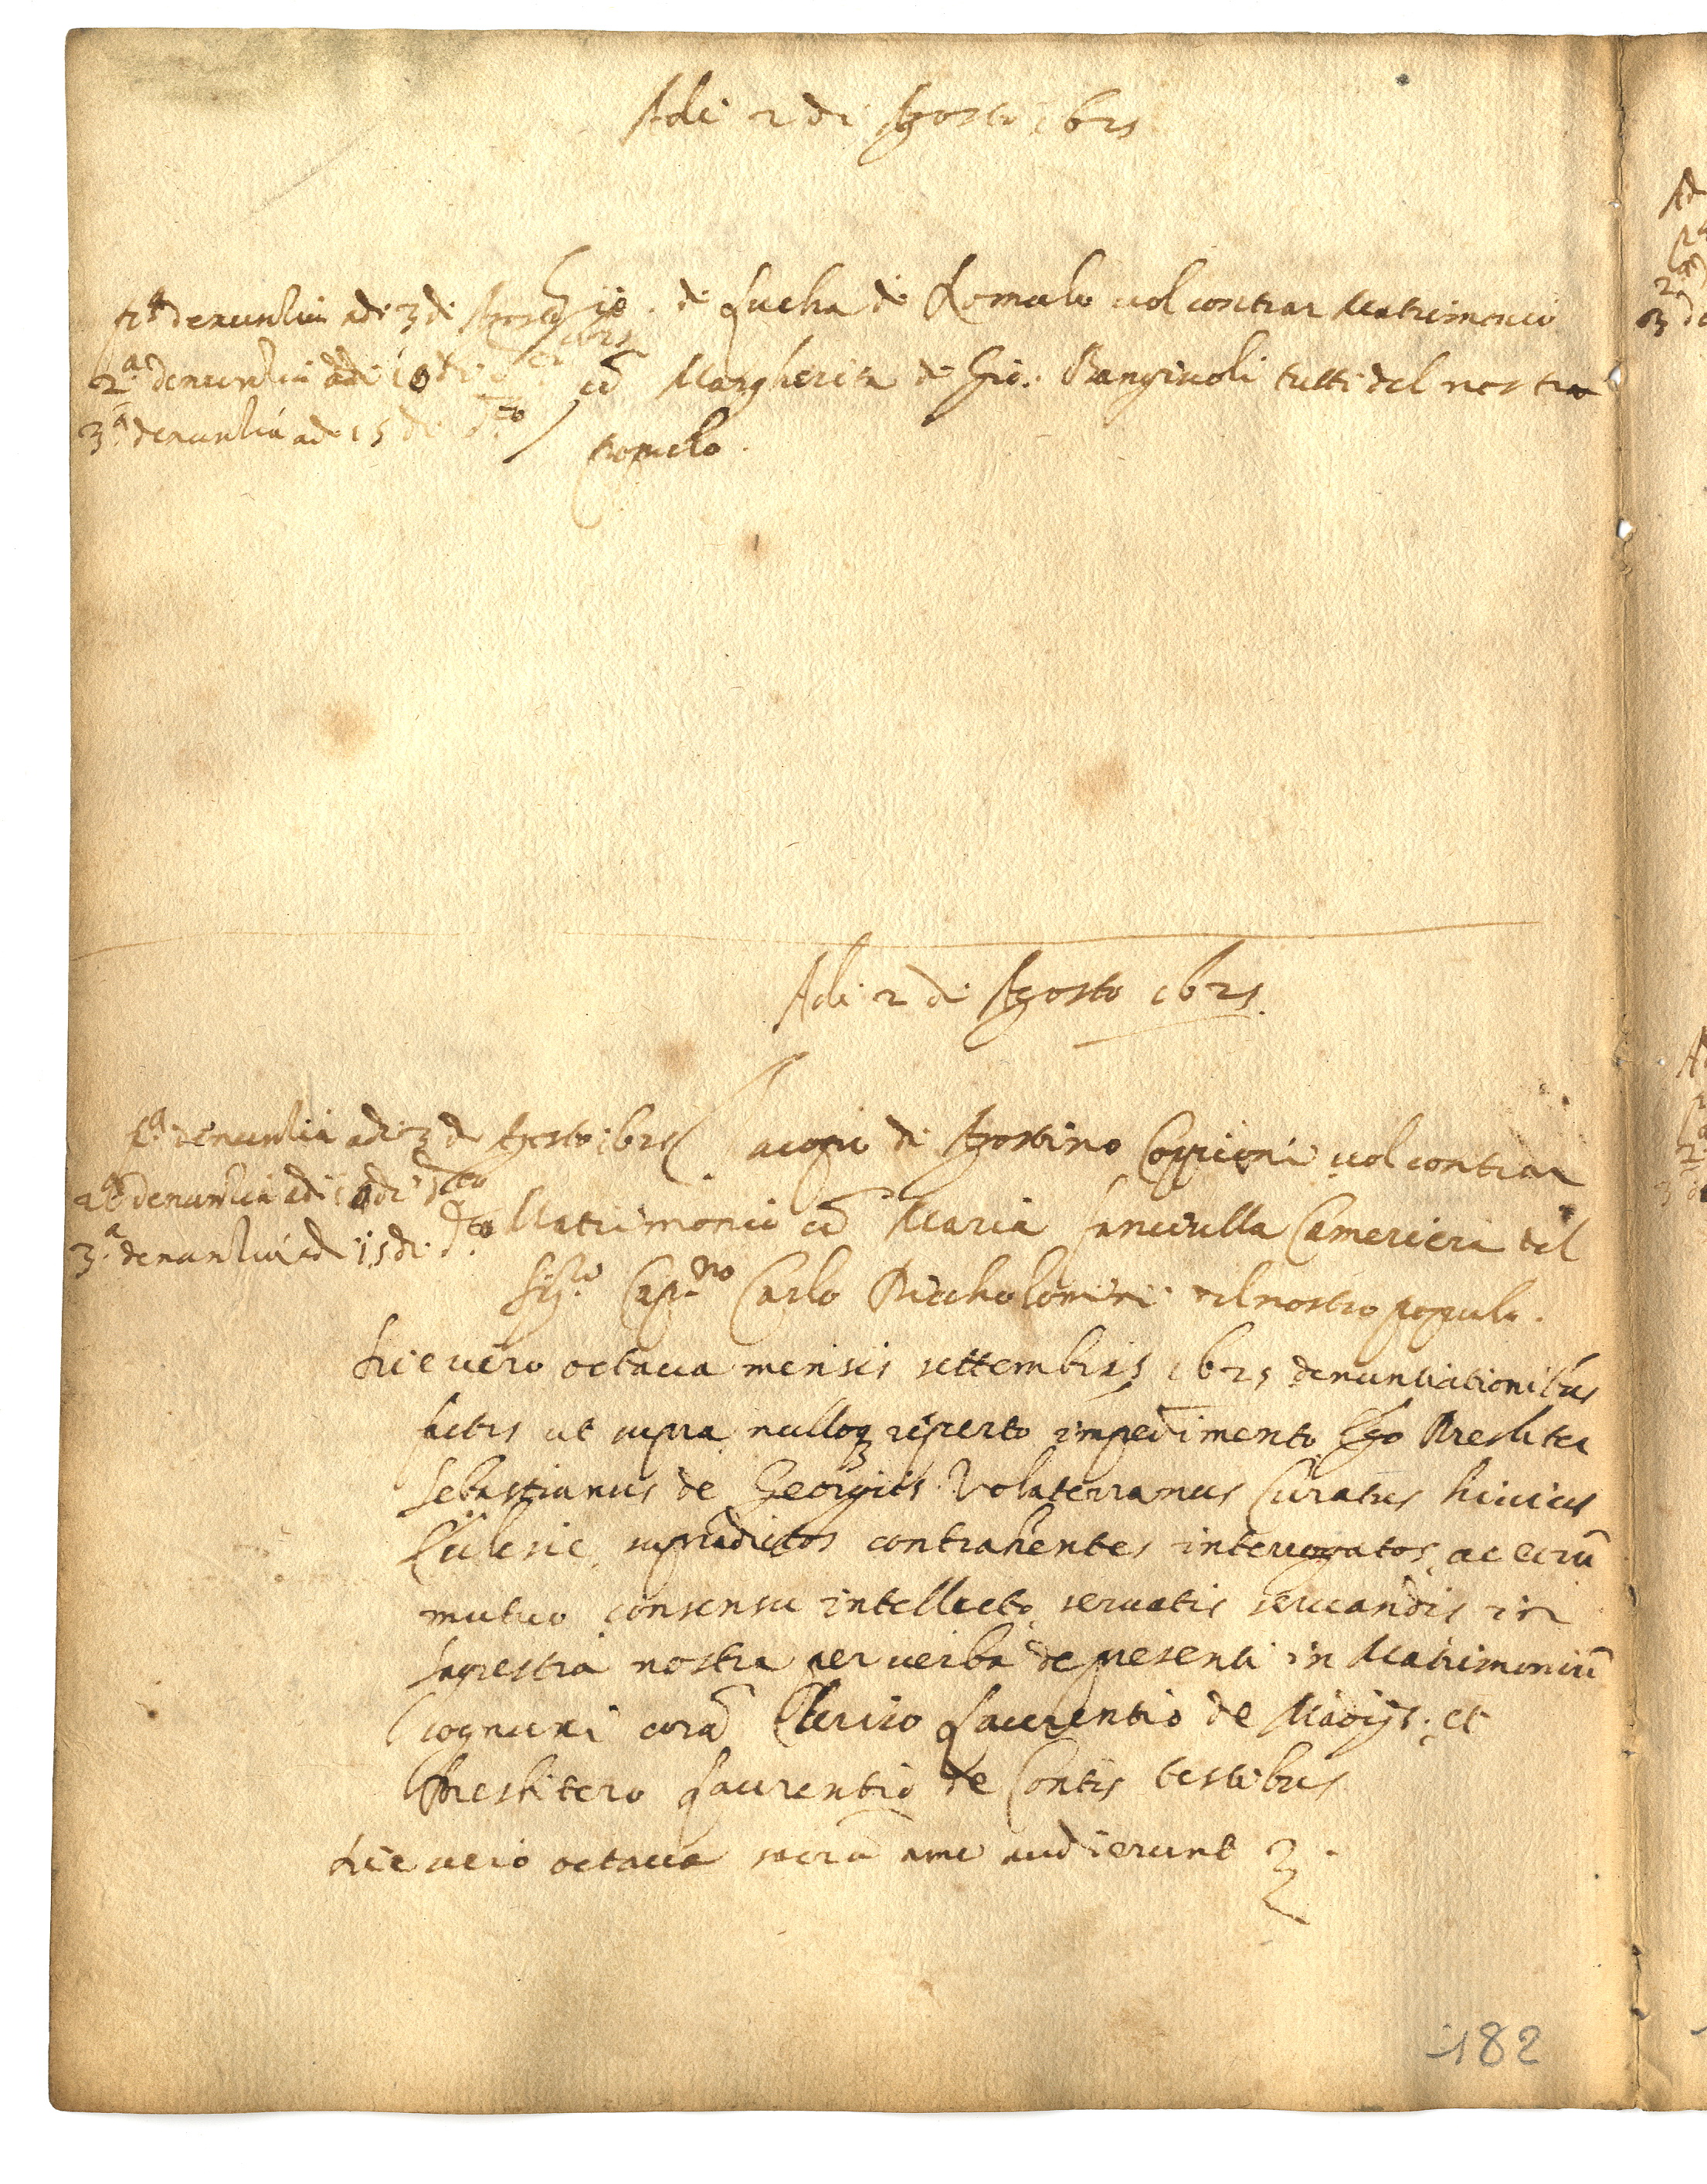 Adi 2 di Agosto 1625
p.a denuntia adi 3 di Agosto 1625
2.a denuntia adi 10 di d.to
3.a denuntia adi 15 di d.to
Gio. di Lucha di Romulo vol contrar Matrimonio
cō Margherita di Gio: tutti del nostro
Popolo.
Adi 2 di Agosto 1625.
p.a denuntia adi 3 di Agosto 1625
2.a denuntia adi 10 di d.to
3.a denuntia adi 15 di d.to
Iacopo di Agostino Coppioni vol contrar
Matrimonio cō Maria fanciulla Cameriera del
Sig.re Cap.no Carlo Piccholomini del nostro popolo.
Die vero octava mensis settembris 1625 denuntiationibus
factis ut supra nulloq; reperto impedimento Ego Presbiter
Sebastianus de Georgiis Volaterranus Curatus huiius
Ecclesie supradictos contrahentes interrogatos, ac eorū
mutuo consensu intellecto servatis servandis in
sagrestia nostra per verba de presenti in Matrimoniū
coniunxi corā Clerico Laurentio de Magijs: et
Presbitero Laurentio de Contis testibus
Die vero octava sacrū audierunt
182